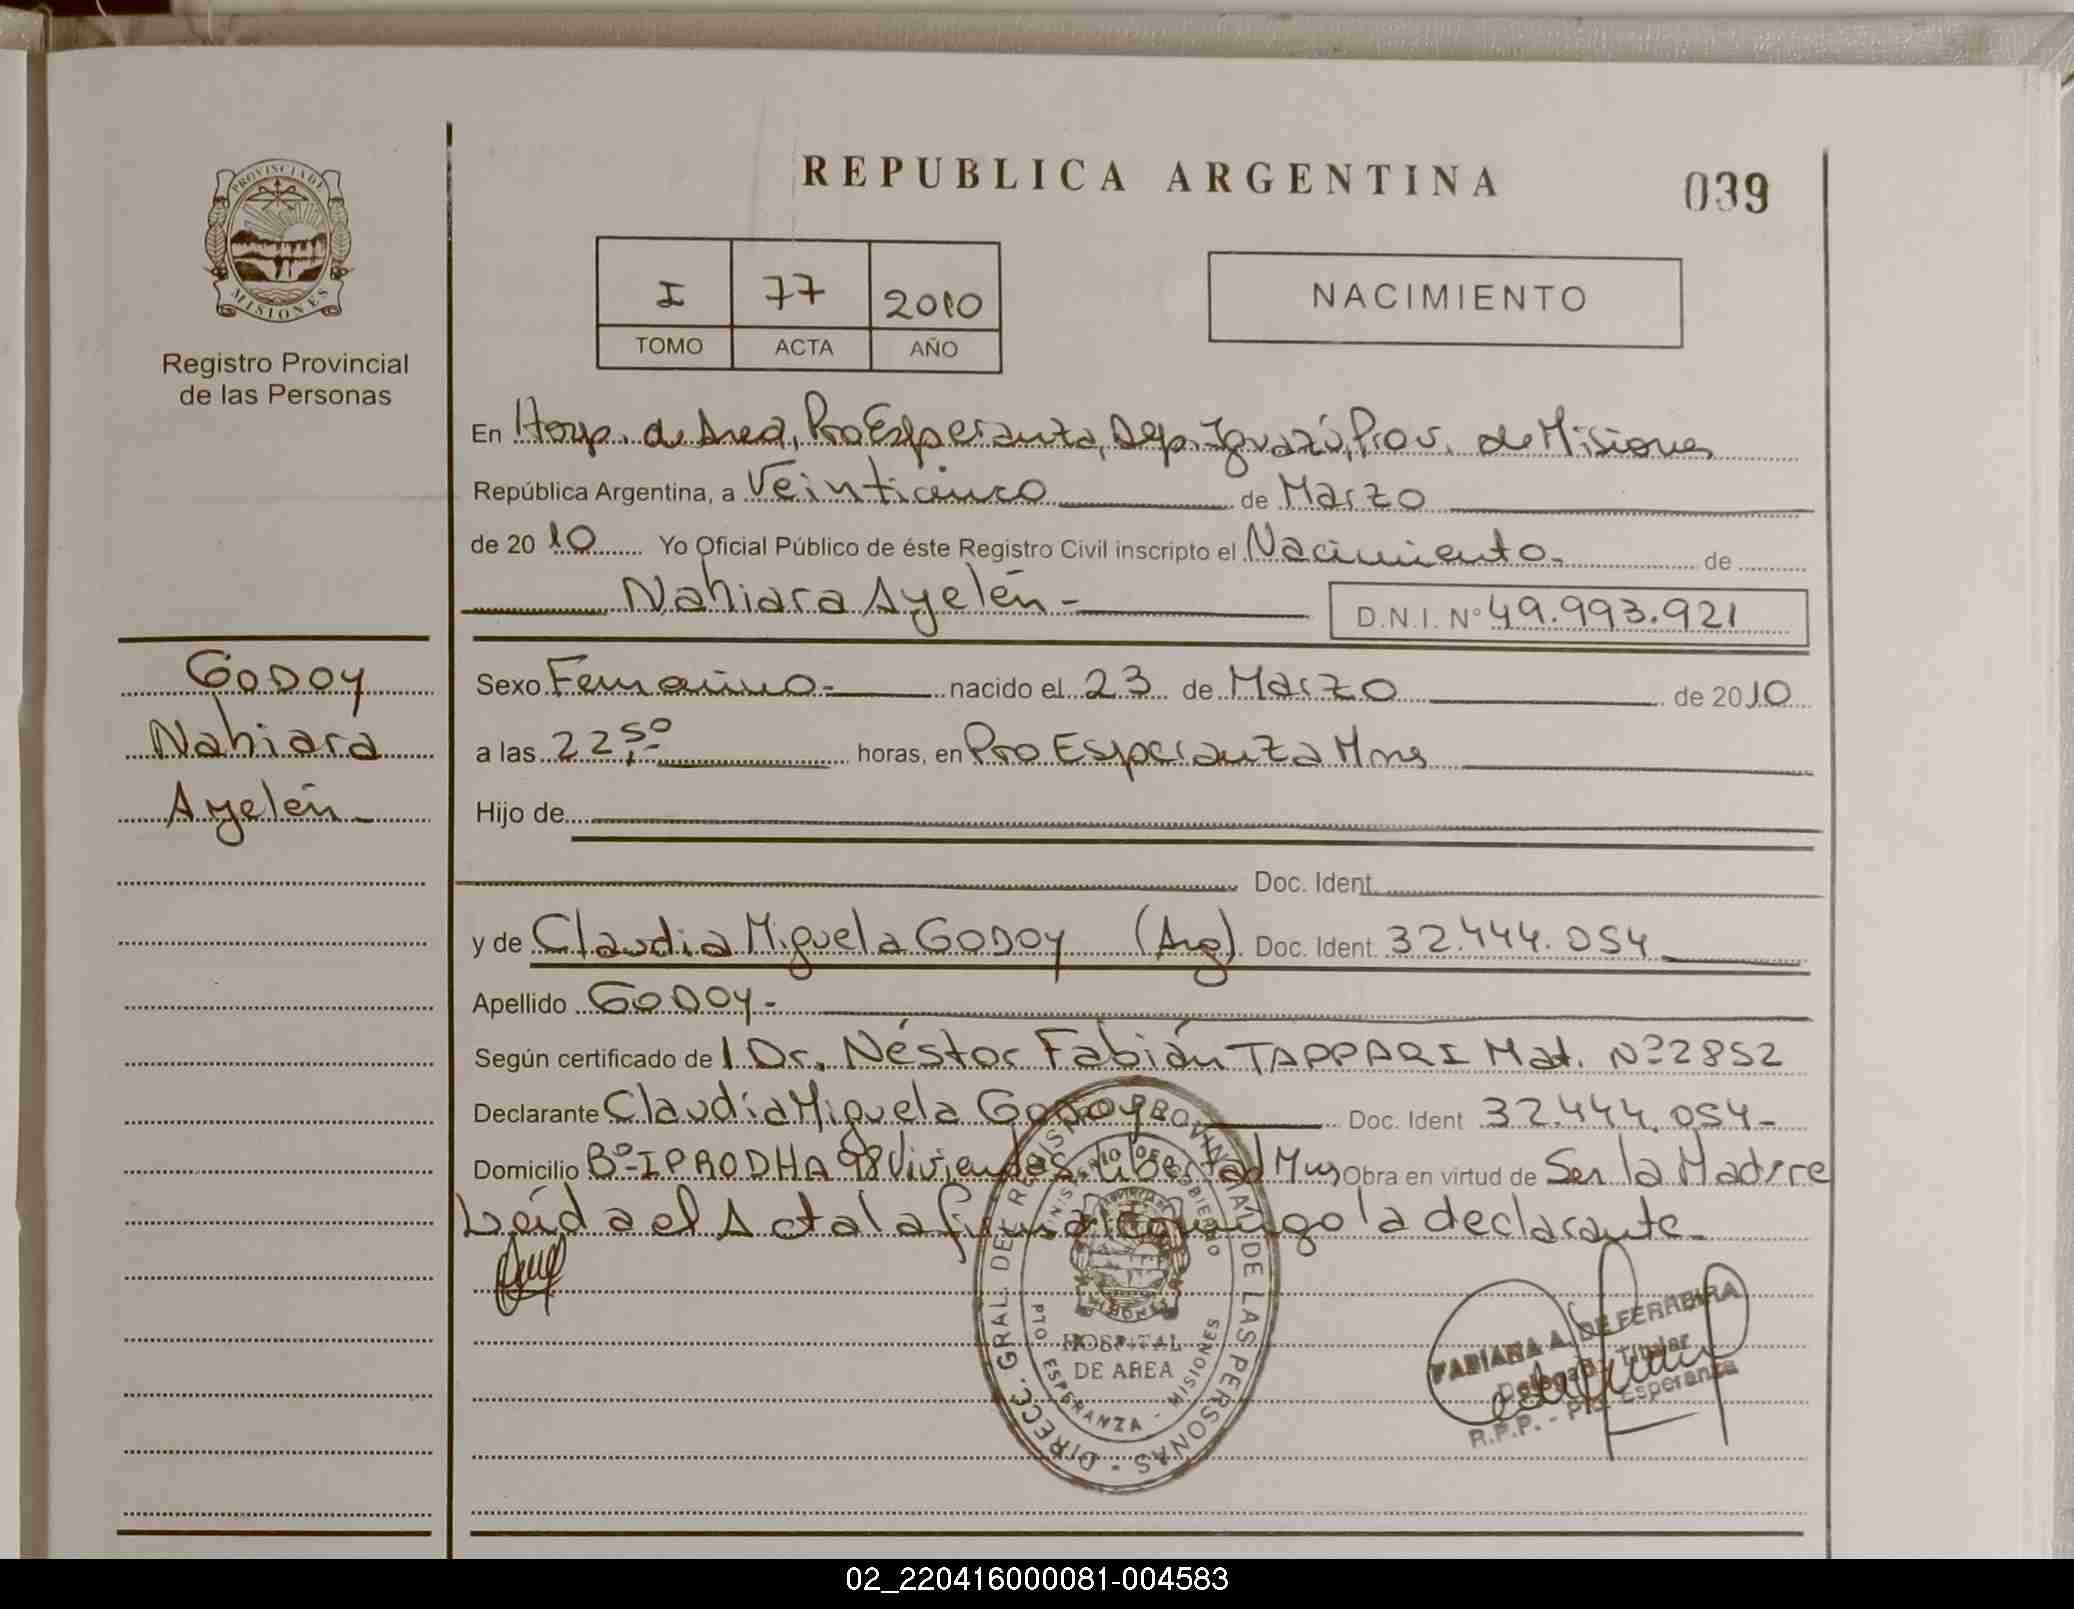 REPUBLICA ARGENTINA
039
PROVINCIA DE
MISIONES
Registro Provincial
de las Personas
I 77 2010
TOMO ACTA AÑO
NACIMIENTO
En Hosp. de Area, Pto Esperanza, Dep. Iguazú, Prov. de Misiones
República Argentina, a Veinticinco de Marzo
de 2010 Yo Oficial Público de éste Registro Civil inscripto el Nacimiento.- de
Nahiara Ayelén -
D.N.I. Nº 49.993.921
GODOY
Nahiara
Ayelén -
Sexo Femenino.- nacido el 23 de Marzo de 2010
a las 22,50 horas, en Pto Esperanza Mnes
Hijo de
Doc. Ident.
y de Claudia Miguela GODOY (Arg) Doc. Ident. 32.444.054
Apellido GODOY -
Según certificado de l Dr. Néstor Fabián TAPPARI Mat. Nº 2852
Declarante Claudia Miguela GODOY - Doc. Ident 32.444.054 -
Domicilio Bº IPRODHA 98 Viviendas Libertad Mns Obra en virtud de Ser la Madre
Leída el Acta la firma conmigo la declarante.-
DIRECC. GRAL. DE REGISTRO PROVINCIAL DE LAS PERSONAS -
MINISTERIO DE GOBIERNO
PROVINCIA DE
MISIONES
HOSPITAL
DE AREA
PTO. ESPERANZA - MISIONES
FABIANA A. DE FERREIRA
Delegada Titular
R.P.P. - Pto. Esperanza
02_220416000081-004583